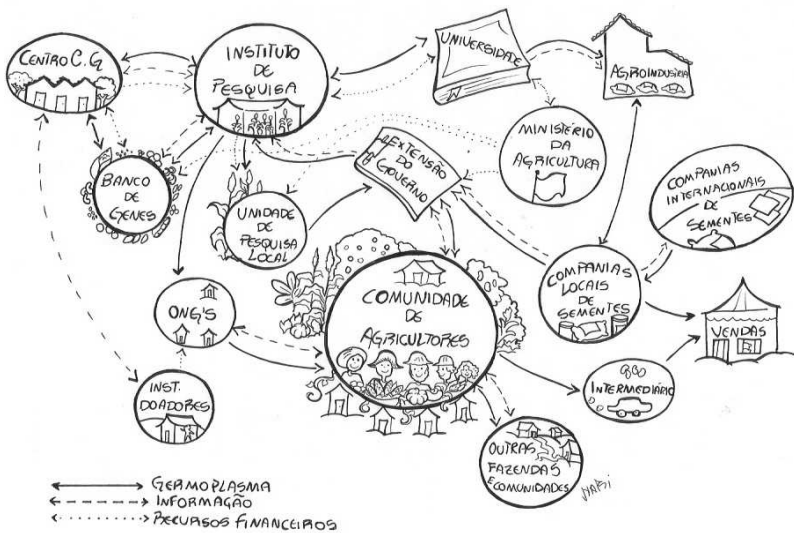 CENTRO C.G.
INSTITUTO
DE
PESQUISA
UNIVERSIDADE
AGROINDUSTRIA
BANCO
DE
GENES
UNIDADE
DE
PESQUISA
LOCAL
EXTENSÃO
DO
GOVERNO
MINISTÉRIO
DA
AGRICULTURA
COMPANIAS
INTERNACIONAIS
DE
SEMENTES
ONG'S
COMUNIDADE
DE
AGRICULTORES
COMPANIAS
LOCAIS
DE
SEMENTES
VENDAS
INST.
DOADORES
INTERMEDIÁRIO
OUTRAS
FAZENDAS
E COMUNIDADES
GERMOPLASMA
INFORMAÇÃO
RECURSOS FINANCEIROS